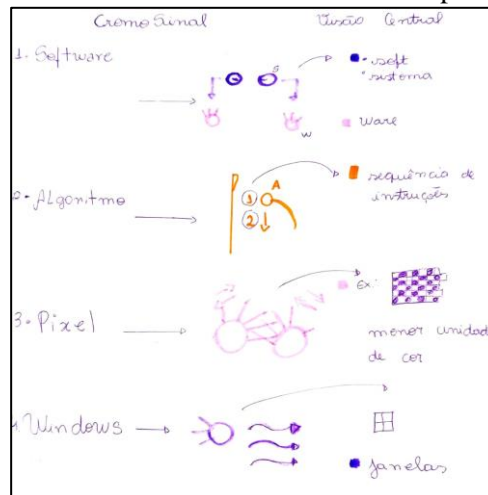 Cromo Sinal
Visão Central
1. Software
S
soft
sistema
W
ware
2. Algoritmo
1
A
2
sequência de
instruções
3. Pixel
Ex:
menor unidad
de cor
Windows
janelas